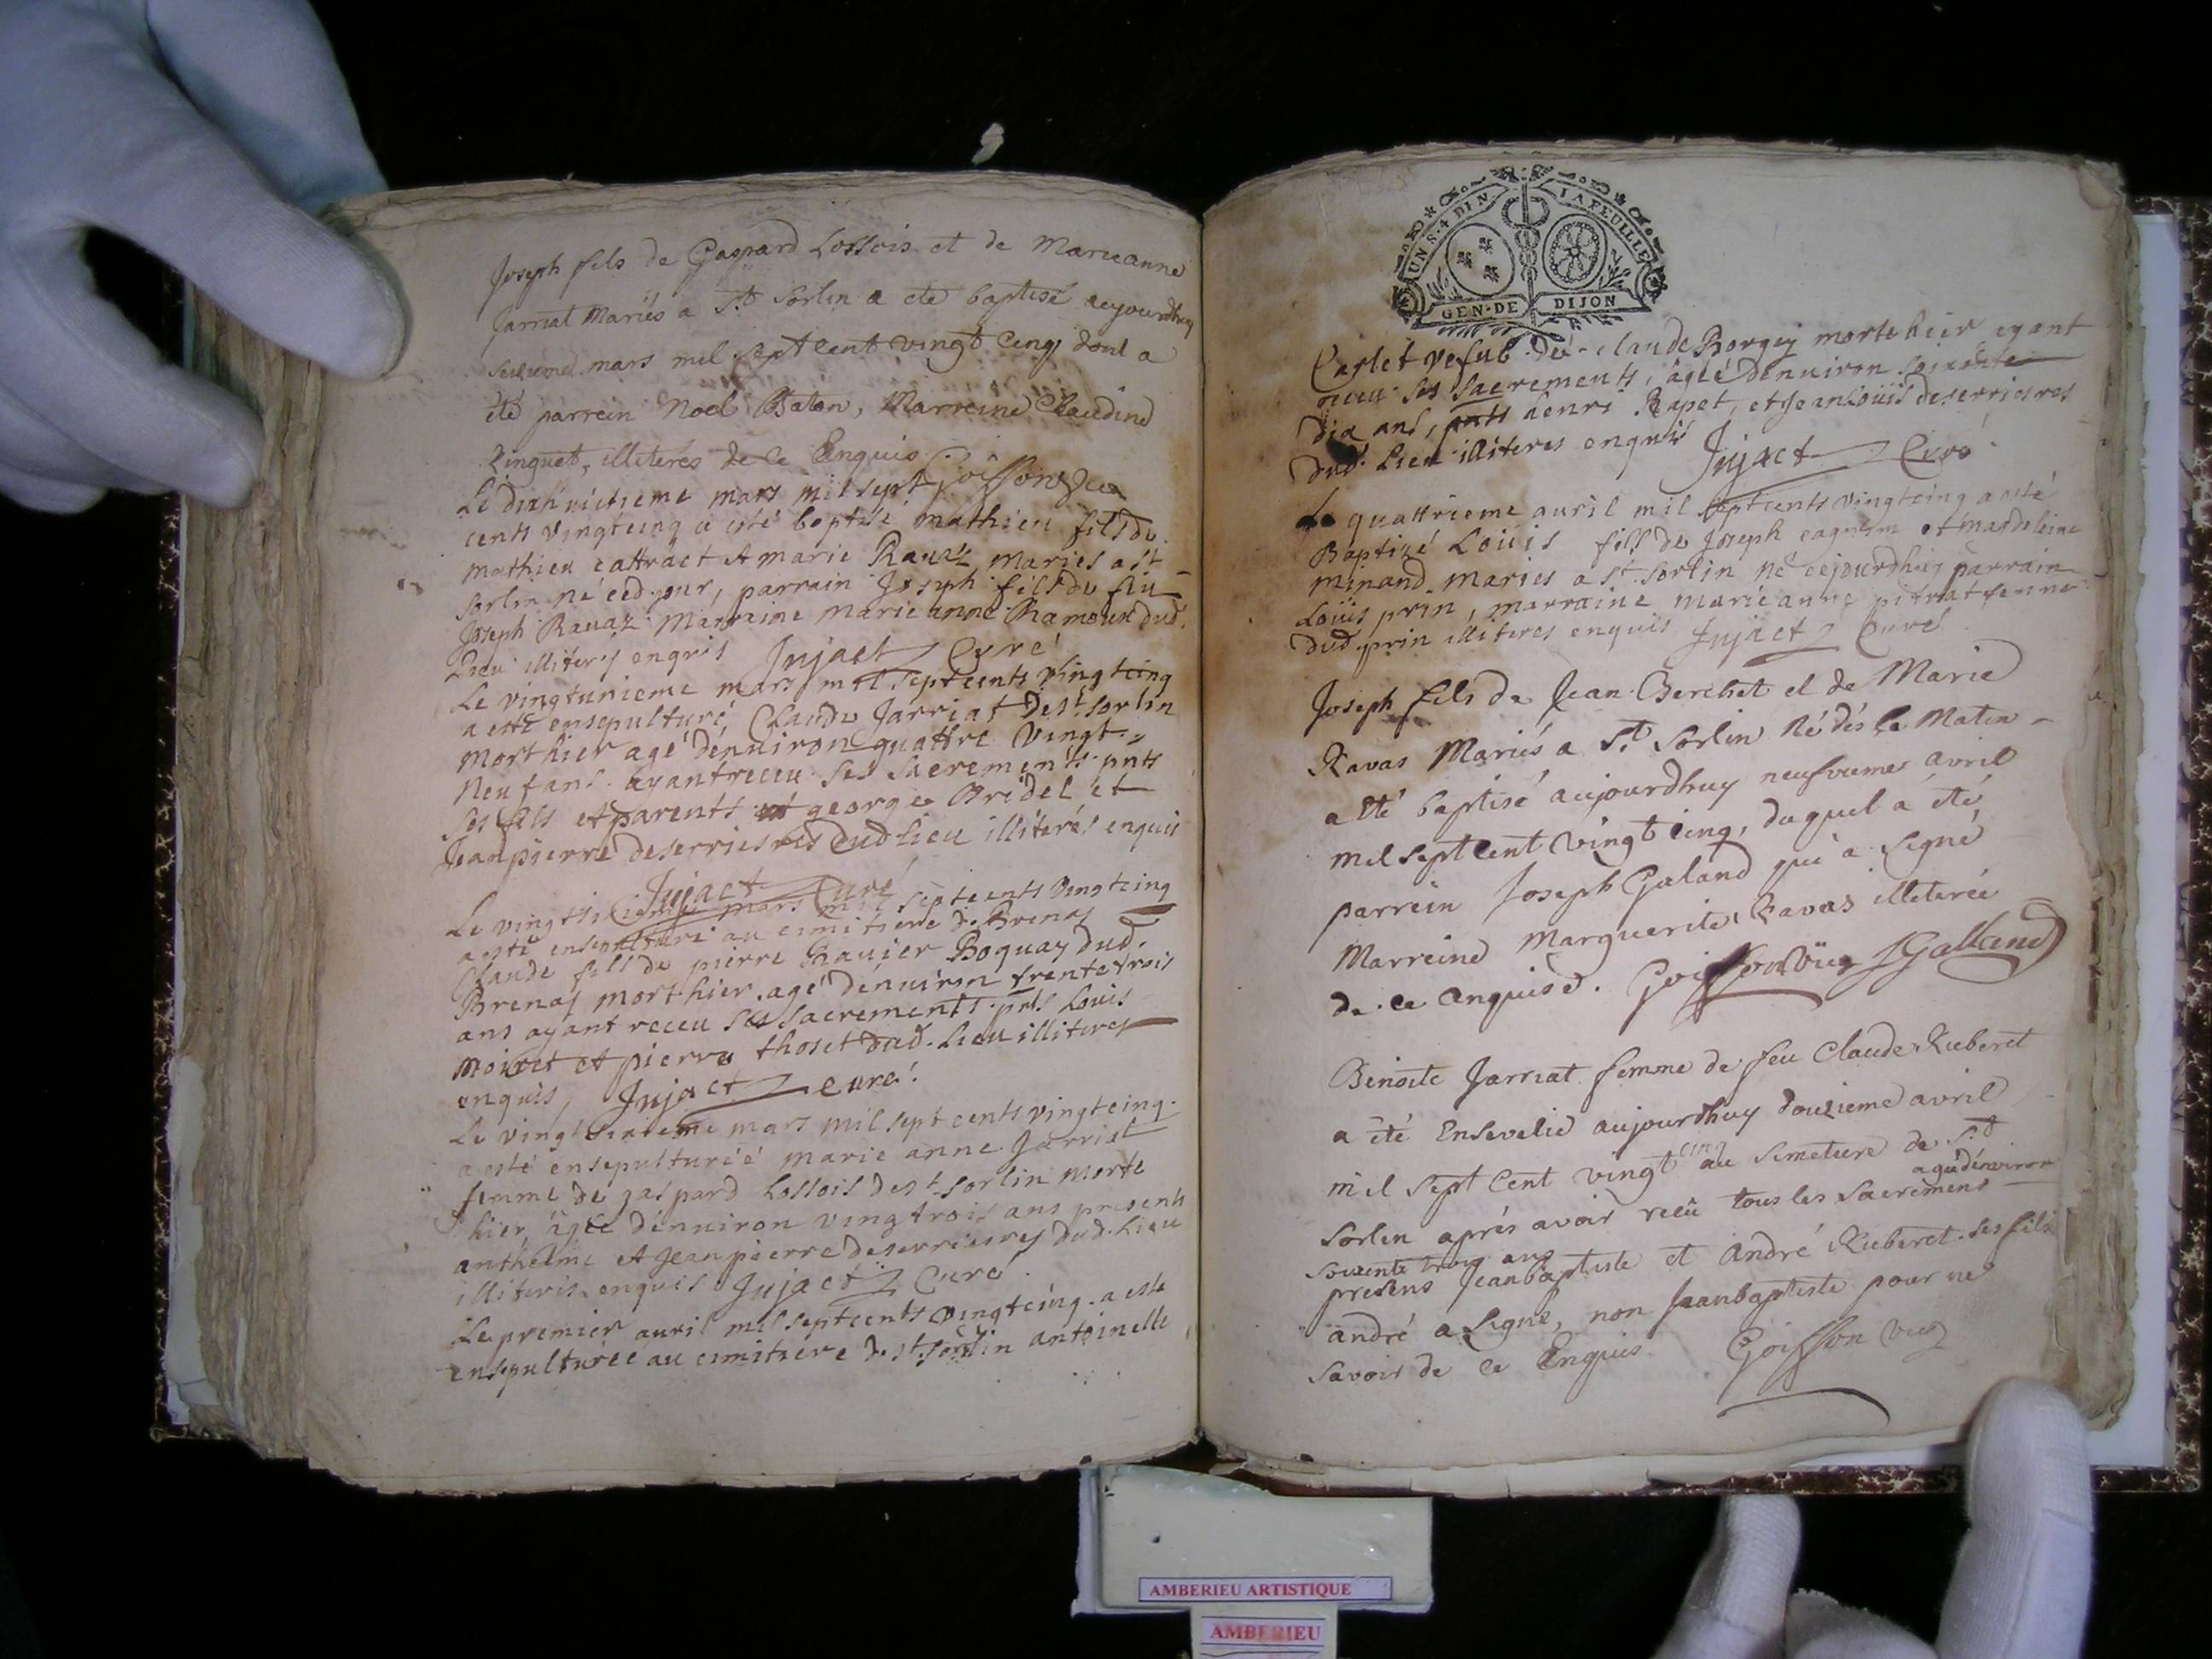 Joseph fils de Gaspard Lossois et de Marieanne
Jarriat Mariés a St. Sorlin a eté baptisé aujourdhuy
seizieme mars mil sept cent vingt cinq dont a
été parrein Noel Baton, Marreine Claudine
illiterés de ce Enquis.
Le dixhuictieme mars mil sept
cents vingtcinq a esté baptisé mathieu fils de
mathieu cattract et marie Ravaz mariés a st
sorlin né ced. jour, parrain Joseph fils de feu
Joseph Ravaz Marraine marieanne Ramoux dud.
Lieu illiterés enquis Injact Curé
Le vingtunieme mars mil septcents vingtcinq
a esté ensepulturé Claude Jarriat de st. sorlin
mort hier agé dénuiron quattre vingt
neuf ans ayant receu ses sacrements pnts
ses fils et parents george Bridel et
Jeanpierre deserriesres dud lieu illiterés enquis
Injact Curé
Le mars mil septcents vingtcinq
a esté ensepulturé au cimitiere de Brenas
Claude fils de pierre Ravier Boquay dud.
Brenas mort hier. agé dénuiron trente trois
ans ayant receu ses sacrements. pnts Louis
moiret et pierre thoset dud. Lieu illiteres
enquis, Injact curé.
Le vingtsixieme mars mil sept cents vingtcinq.
a esté ensepulturéé marie anne Jarriat
femme de gaspard Lossois de st sorlin morte
hier, agéé dénuiron vingtrois ans presents
anthelme et Jeanpierre deserriesres dud. Lieu
illiteris enquis Injact Curé.
Le premier auril mil septcents vingtcinq. a esté
ensepulturéé au cimitiere de st. sorlin antoinette
UN S. 4 DIN LA FEUILLE
GEN. DE DIJON
Carlet vefue de claude Borgey morte hier ayant
receu ses sacrements, agéé dénuiron soixante
dix ans, pnts henri Rapet, et Jeanloüis deserriesres
dud. Lieu illiteres enquis Injact Curé
Le quattrieme auril mil septcents vingtcinq a esté
Baptizé Loüis fils de Joseph cagnin et magdeleine
minand mariés a st. sorlin né cejourdhuy parrain
Loüis prin, marraine marieanne pitrat femme
dud. prin illiteres enquis Injact Curé
Joseph fils de Jean Berchet et de Marie
Ravas Mariés a St. Sorlin né dés le Matin
a eté baptisé aujourdhuy neufvieme avril
mil sept cent vingt cinq, duquel a eté
parrein Joseph Galand qui a signé
Marreine Marguerite Ravas illeterée
de ce enquise. Goiffon vic JGalland
Benoite Jarriat femme de feu Claude Ruberet
a été Ensevelie aujourdhuy douzieme avril
mil sept cent vingt cinq au simetiere de St.
Sorlin aprés avoir reçû tous les sacremens agéé denviron
soixente trois ans
presens Jeanbaptiste et André Ruberet ses fils
andré a signé, non Jeanbaptiste pour ne
savoir de ce Enquis Goiffon vic
AMBERIEU ARTISTIQUE
AMBERIEU